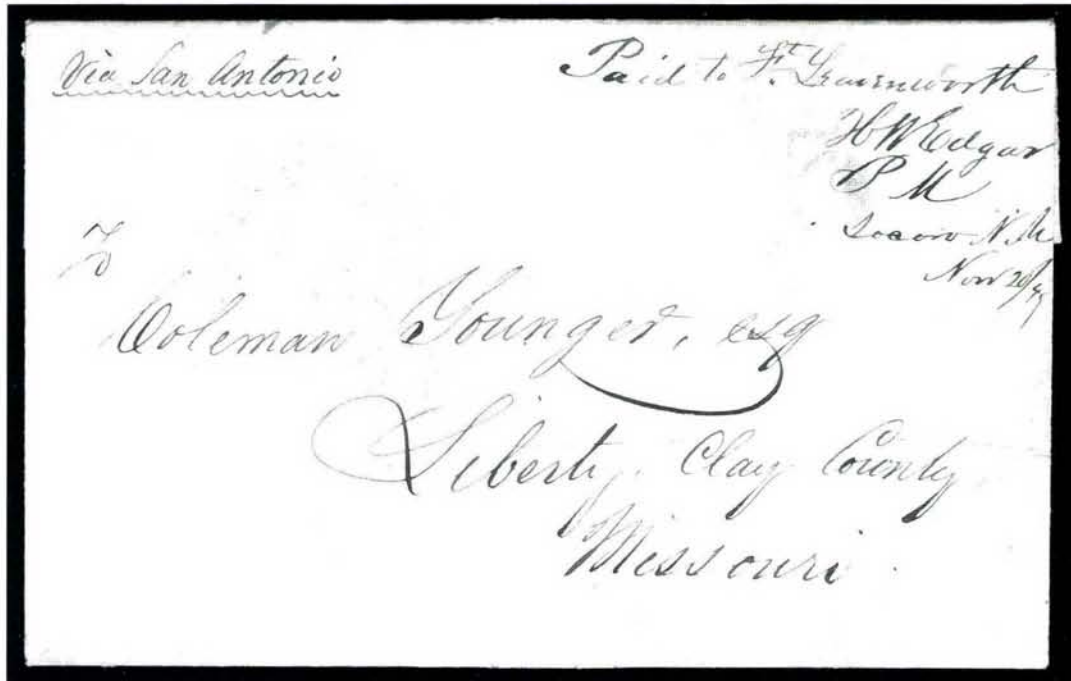 Via San Antonio
Paid to Ft. Leavenworth
H W Edgar
P M
Socoro N. M
Nov 20/
To
Coleman Younger, esq
Liberty, Clay County
Missouri